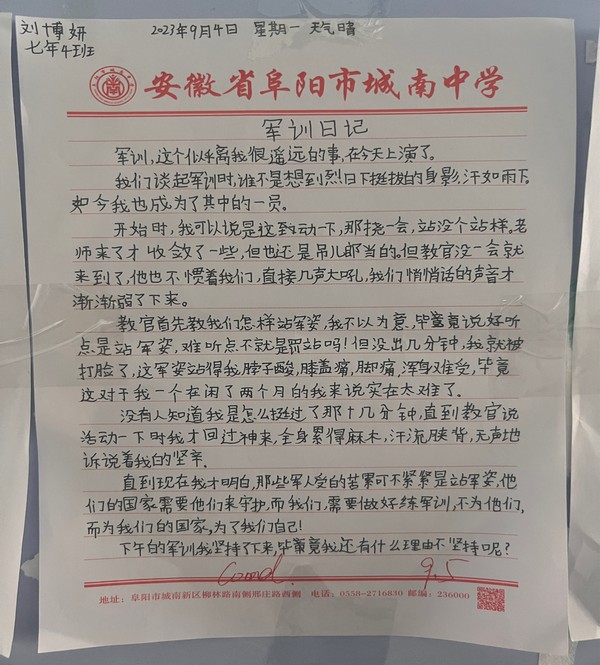 刘博妍 2023年9月4日 星期一 天气晴
七年4班
安徽省阜阳市城南中学
军训日记
军训,这个似乎离我很遥远的事,在今天上演了。
我们谈起军训时,谁不是想到烈日下挺拔的身影,汗如雨下。
如今我也成为了其中的一员。
开始时,我可以说是这到动一下,那挠一会,站没个站样。老
师来了才收敛了一些,但也还是吊儿郎当的。但教官没一会就
来到了,他也不惯着我们,直接几声大吼,我们悄悄话的声音才
渐渐弱了下来。
教官首先教我们怎样站军姿,我不以为意,毕竟说好听
点是站军姿,难听点不就是罚站吗!但没出几分钟,我就被
打脸了,这军姿站得我脖子酸,膝盖痛,脚痛,浑身难受,毕竟
这对于我一个在闲了两个月的我来说实在太难了。
没有人知道我是怎么挺过了那十几分钟,直到教官说
活动一下时我才回过神来,全身累得麻木,汗流浃背,无声地
诉说着我的坚辛。
直到现在我才明白,那些军人受的苦累可不紧紧是站军姿,他
们的国家需要他们来守护,而我们,需要做好练军训,不为他们,
而为我们的国家,为了我们自己!
下午的军训我坚持了下来,毕竟我还有什么理由不坚持呢?
Good. 9.5
地址:阜阳市城南新区柳林路南侧邢庄路西侧 电话:0558-2716830 邮编:236000